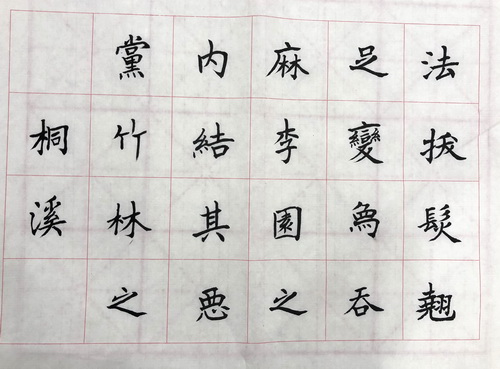 法拔髮翹
足變為吞
麻李園之
內結其悪
黨竹林之
桐溪